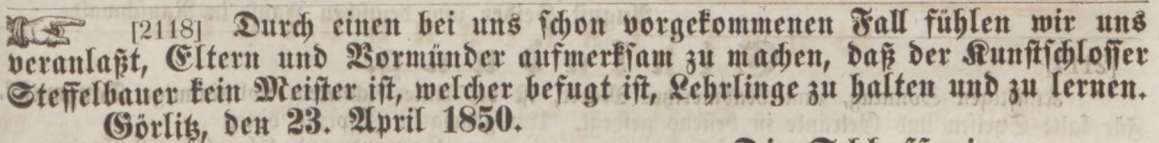 ☞ [2118] Durch einen bei uns schon vorgekommenen Fall fühlen wir uns
veranlaßt, Eltern und Vormünder aufmerksam zu machen, daß der Kunstschlosser
Steffelbauer kein Meister ist, welcher befugt ist, Lehrlinge zu halten und zu lernen.
Görlitz, den 23. April 1850.